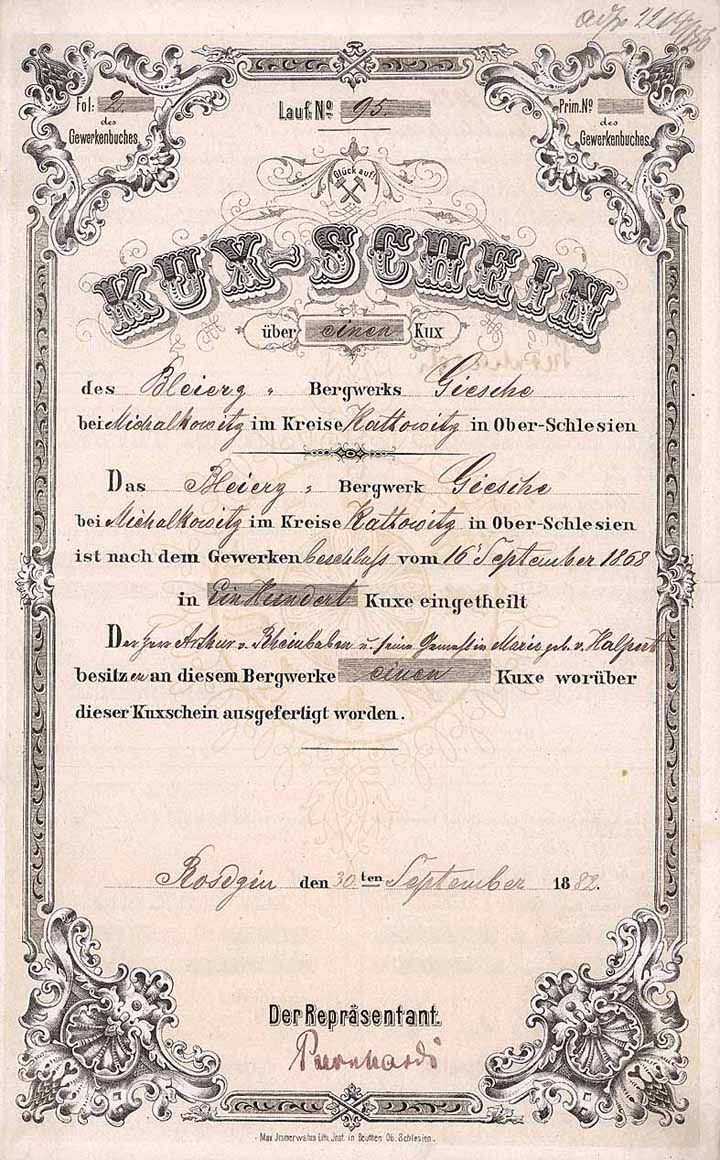 Fol: 2.
des
Gewerkenbuches.
Lauf. No 95.
Prim. No
des
Gewerkenbuches.
Glück auf!
KUX-SCHEIN
über einen Kux
des Bleierz „ Bergwerks Giesche
bei Michalkowitz im Kreise Kattowitz in Ober-Schlesien
Das Bleierz „ Bergwerk Giesche
bei Michalkowitz im Kreise Kattowitz in Ober-Schlesien
ist nach dem Gewerkenbeschluß vom 16t September 1868
in Ein Hundert Kuxe eingetheilt
Der Herr Arthur v. Rheinbaben u. seine Gemahlin Marie geb. v. Halpert
besitzen an diesem Bergwerke einen Kuxe worüber
dieser Kuxschein ausgefertigt worden.
Rosdzin den 30.ten September 1882.
Der Repräsentant.
Bernhardi
Max Immerwahrs Lith. Inst. in Beuthen Ob. Schlesien.